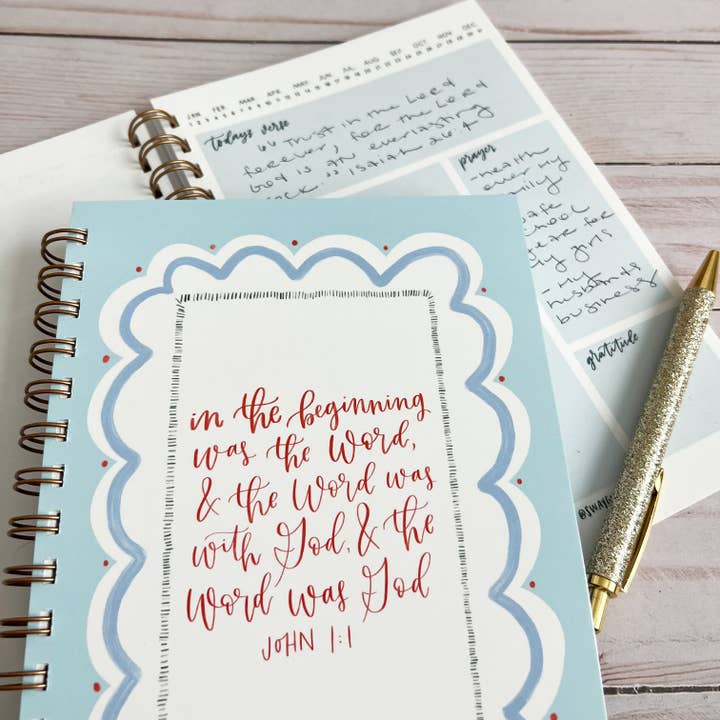 JAN FEB MAR APR MAY JUN JUL AUG SEP OCT NOV DEC
todays verse
"Trust in the Lord
forever, for the Lord
God is an everlasting
rock." Isaiah 26:4
prayer
-health
over my
family
school
year for
my girls
- my
husbands
business
gratitude
in the beginning
was the Word,
& the Word was
with God, & the
Word was God
JOHN 1:1